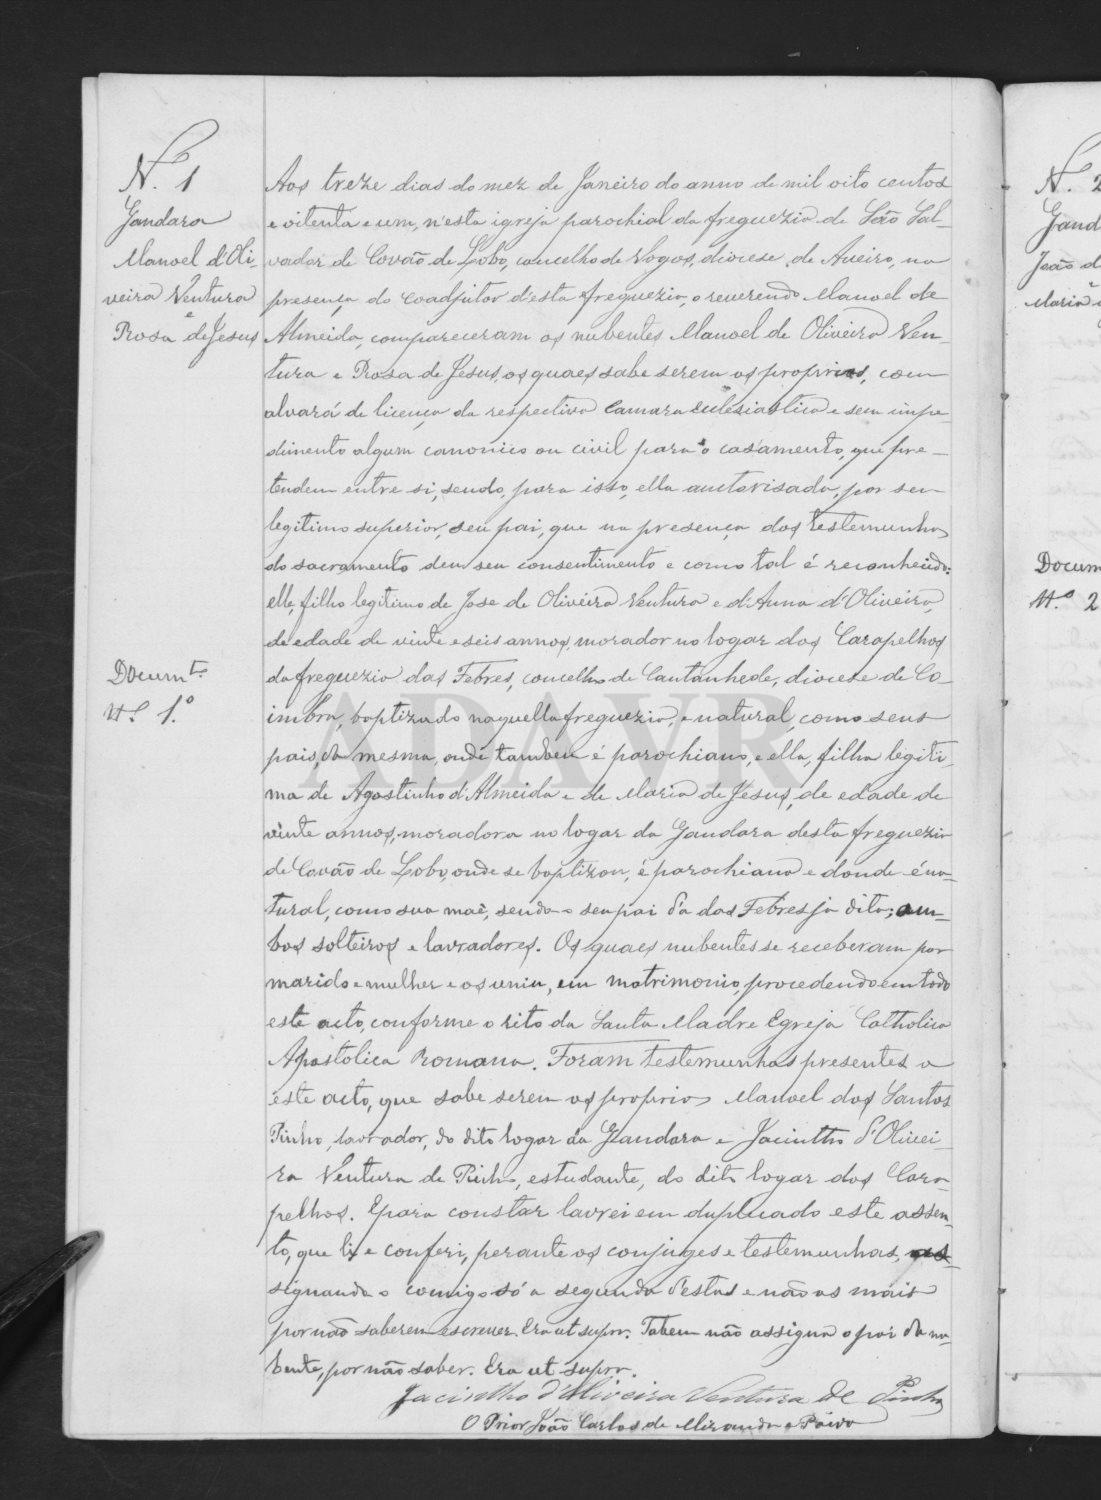 N.º 1
Gandara
Manoel d'Oli-
veira Ventura
e
Rosa de Jesus
Aos treze dias do mez de Janeiro do anno de mil oito centos
e oitenta e um, n'esta igreja parochial da freguezia de São Sal-
vador de Covão de Lobo, concelho de Vagos, diocese de Aveiro, na
presença do coadjutor d'esta freguezia, o reverendo Manoel de
Almeida, compareceram os nubentes Manoel de Oliveira Ven-
tura e Rosa de Jesus, os quaes sabe serem os proprios, com
alvará de licença da respectiva Camara ecclesiastica e sem impe-
dimento algum canonico ou civil para o casamento, que pre-
tendem entre si, sendo, para isso, ella auctorisada, por seu
legitimo superior, seu pai, que na presença das testemunhas
do sacramento deu seu consentimento e como tal é reconhecido:
elle, filho legitimo de Jose de Oliveira Ventura e d'Anna d'Oliveira,
de edade de vinte e seis annos, morador no logar dos Carapelhos
da freguezia das Febres, concelho de Cantanhede, diocese de Co-
imbra, baptizado naquella freguezia, e natural, como seus
pais, da mesma, onde tambem é parochiano, e ella, filha legiti-
ma de Agostinho d'Almeida e de Maria de Jesus, de edade de
vinte annos, moradora no logar da Gandara desta freguezia
de Covão de Lobo, onde se baptizou, é parochiana e donde é na-
tural, como sua maẽ, sendo o seu pai da das Febres ja dita; am-
bos solteiros e lavradores. Os quaes nubentes se receberam por
marido e mulher e os uniu, em matrimonio, procedendo em todo
este acto, conforme o rito da Santa Madre Egreja Catholica
Apostolica Romana. Foram testemunhas presentes a
este acto, que sabe serem os proprios Manoel dos Santos
Pinho, lavrador, do dito logar da Gandara e Jacintho d'Olivei-
ra Ventura de Pinho, estudante, do dito logar dos Cara-
pelhos. E para constar lavrei em duplicado este assen-
to, que li e conferi, perante os conjuges e testemunhas, as-
signando o comigo só a segunda d'estas e não os mais
por não saberem escrever. Era ut supra. Tabem não assigna o pai da nu-
bente, por não saber. Era ut supra.
Jacintho d'Oliveira Ventura de Pinho
O Prior João Carlos de Miranda e Paiva
Docum.to
N.º 1.º
N.º 2
Gand
João d
Maria
Docum
N.º 2
ADAVR